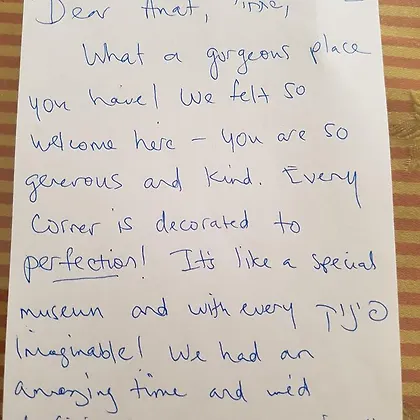 Dear Anat,
What a gorgeous place
you have! We felt so
welcome here – you are so
generous and kind. Every
corner is decorated to
perfection! It's like a special
museum and with every פינוק
imaginable! We had an
amazing time and we'd